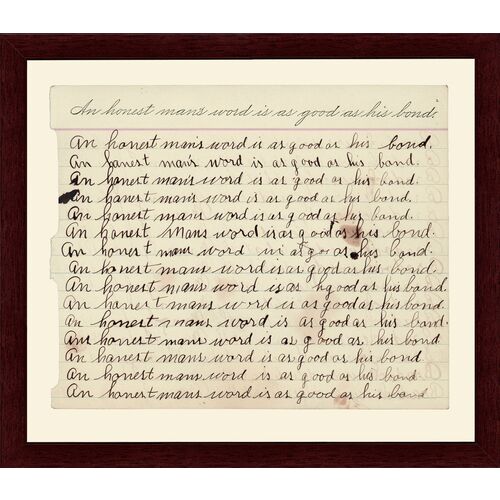 An honest man's word is as good as his bond.
An honest man's word is as good as his bond.
An honest man's word is as good as his bond.
An honest man's word is as good as his bond.
An honest man's word is as good as his bond.
An honest mans word is as good as his bond.
An honest Mans word is as good as his bond.
An honest mans word in as go as his bond.
An honest mans word is as good as his bond.
An honest mans word is as hgood as his bond.
An honest mans word is as good as his bond.
An honest mans word is as good as his bond.
An honest mans word is as good as his bond.
An honest mans word is as good as his bond
An honest mans word is as good as his bond
An honest mans word is as good as his bond